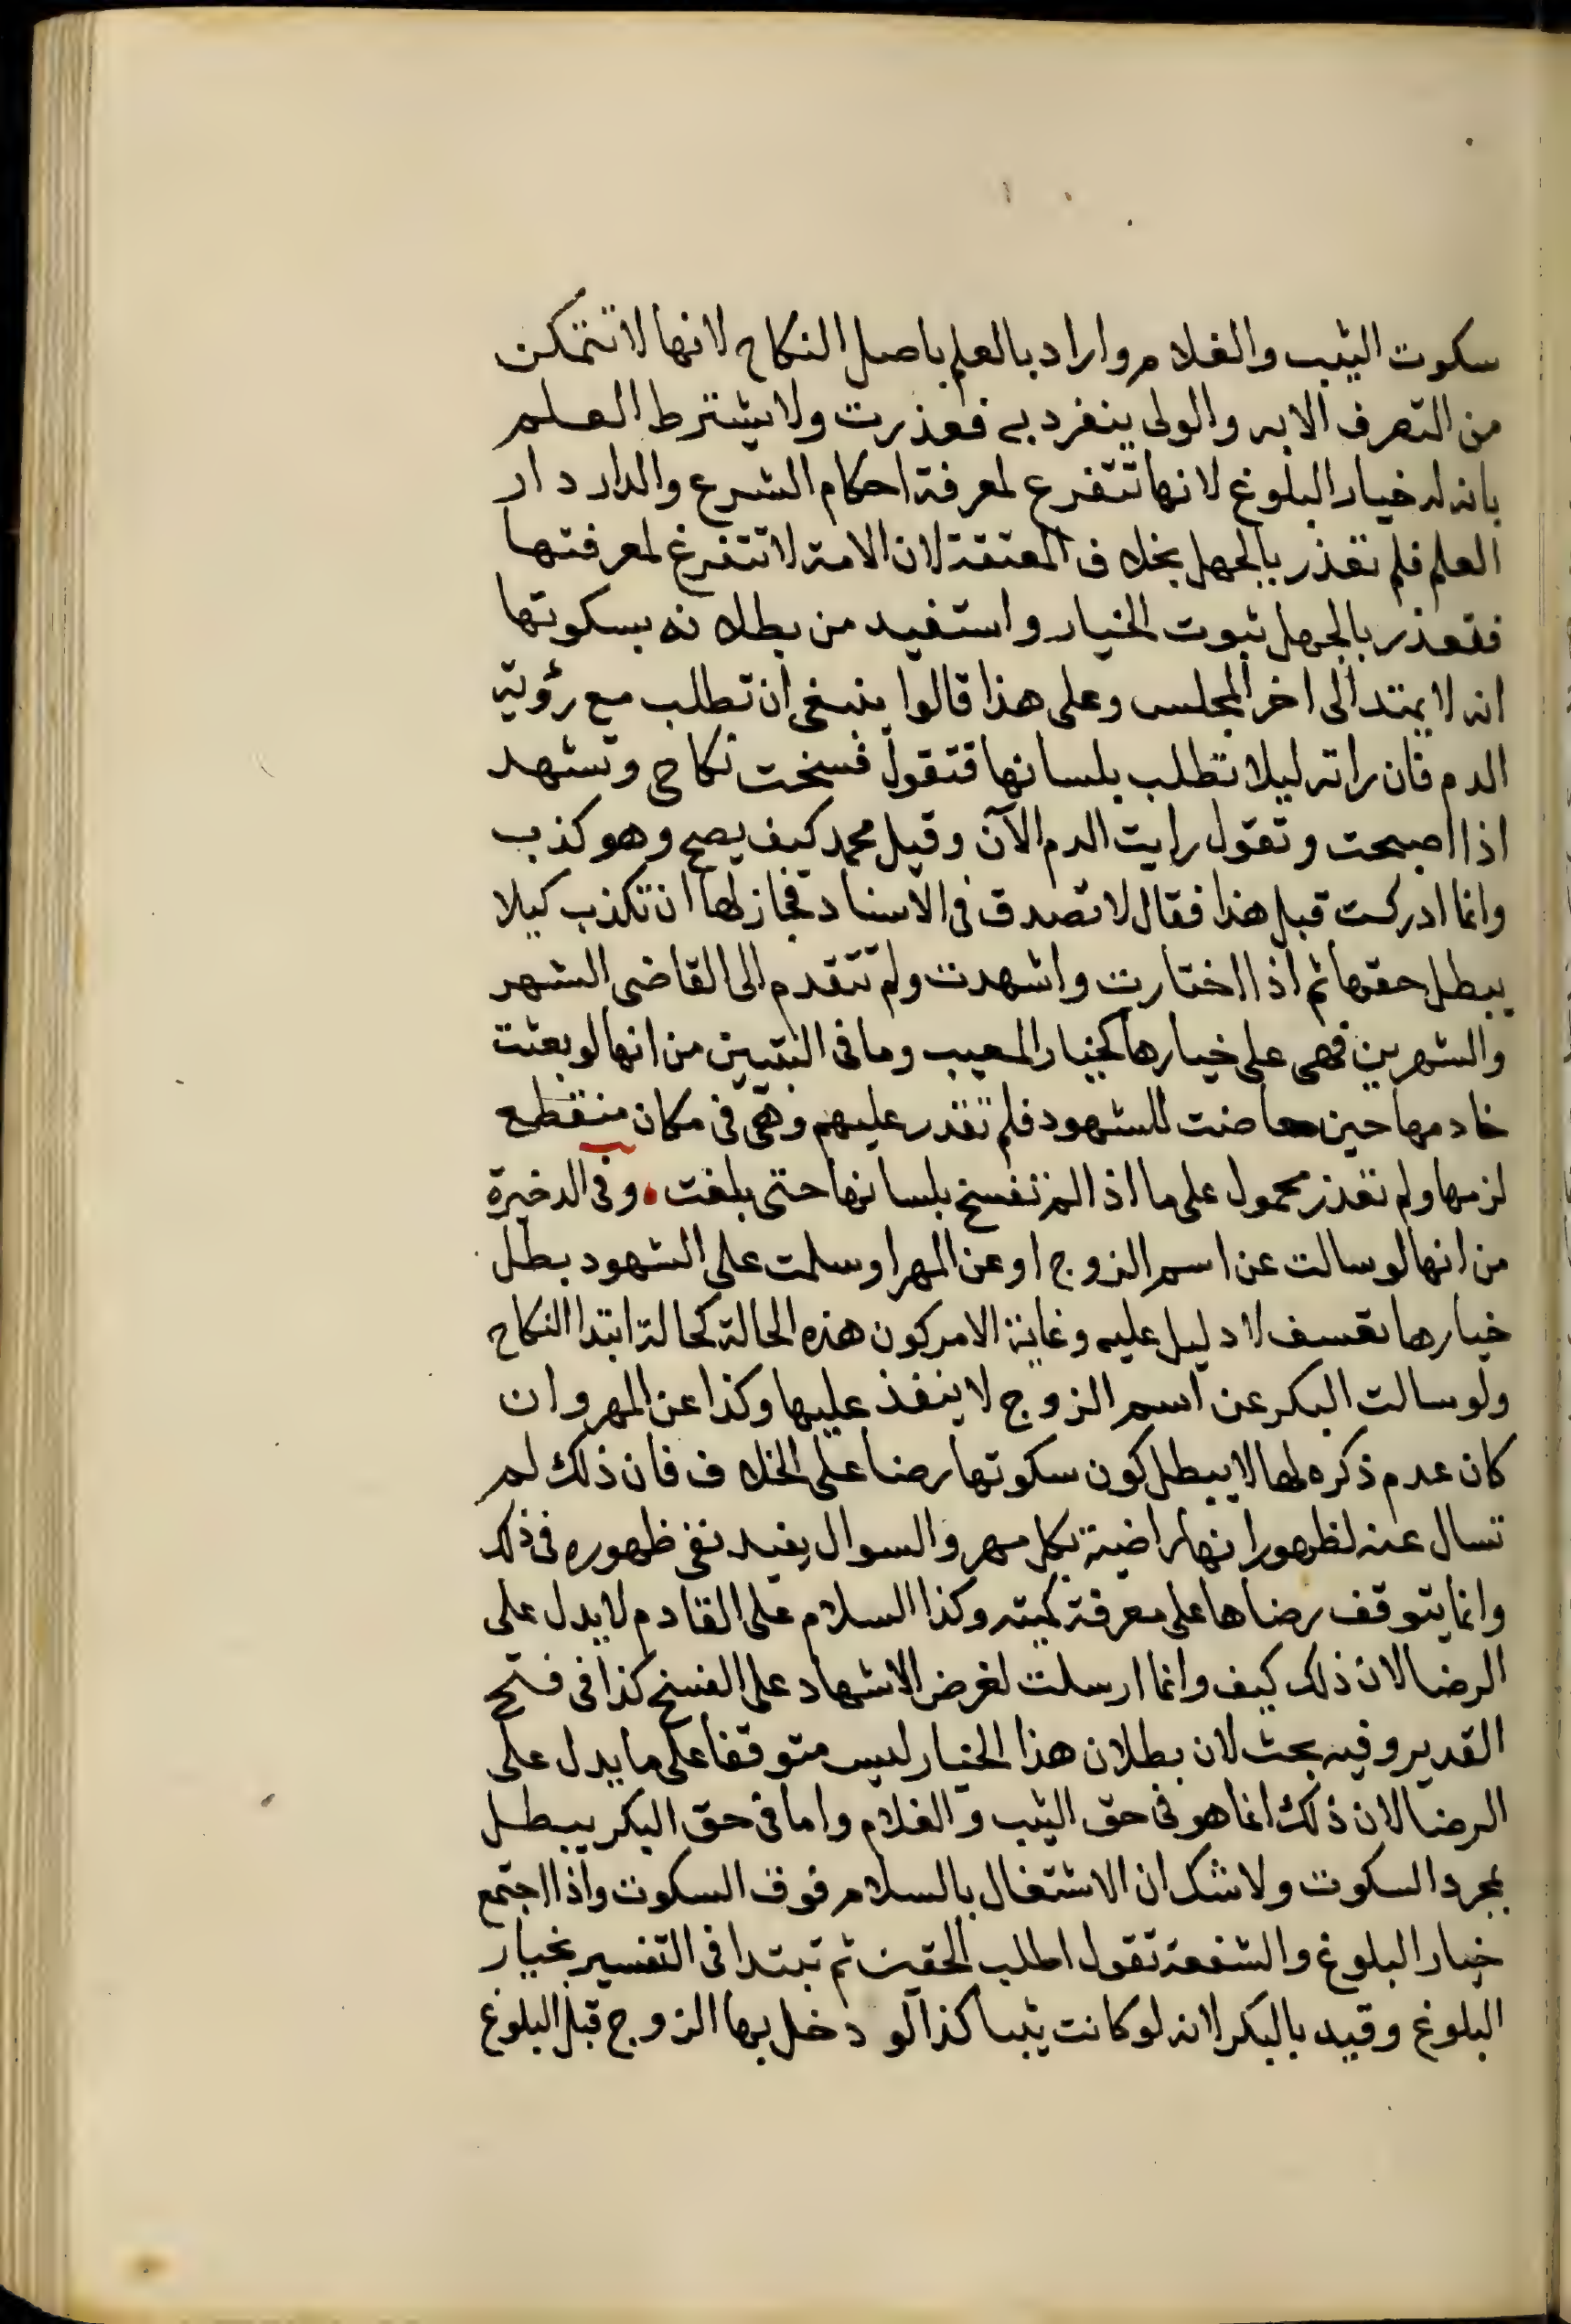 سكوت الثيب والغلام واراد بالعلم باصل النكاح لانها لا تتمكن
من التصرف الا به والولي ينفرد به فعذرت ولا يشترط العلم
بانه له خيار البلوغ لانها تتفرغ لمعرفة احكام الشرع والدار دار
العلم فلم تعذر بالجهل بخلاف المعتقة لان الامة لا تتفرغ لمعرفتها
فتعذر بالجهل ثبوت الخيار واستفيد من بطلانه بسكوتها
انه لا يمتد الى اخر المجلس وعلى هذا قالوا ينبغي ان تطلب مع رؤية
الدم فان راته ليلا تطلب بلسانها فتقول فسخت نكاحي وتشهد
اذا اصبحت وتقول رايت الدم الآن وقيل محمد كيف يصح وهو كذب
وانما ادركت قبل هذا فقال لا تصدق في الاسناد فجاز لها ان تكذب كيلا
يبطل حقها ثم اذا اختارت واشهدت ولم تتقدم الى القاضي الشهر
والشهرين فهي على خيارها كخيار المعيب وما في التبيين من انها لو بعثت
خادمها حين حاضت للشهود فلم تقدر عليهم وهي في مكان منقطع
لزمها ولم تعذر محمول على ما اذا لم تفسخ بلسانها حتى بلغت . وفي الدخيرة
من انها لو سالت عن اسم الزوج او عن المهر او سلمت على الشهود بطل
خيارها تعسف لا دليل عليه وغاية الامر كون هذه الحالة كحالة ابتدا النكاح
ولو سالت البكر عن اسم الزوج لا ينفذ عليها وكذا عن المهر وان
كان عدم ذكره لها لا يبطل كون سكوتها رضا على الخلاف فان ذلك لم
تسال عنه لظهور انها راضية بكل مهر والسوال يفيد نفي ظهوره في ذلك
وانما يتوقف رضاها على معرفة كميته وكذا السلام على القادم لا يدل على
الرضا لان ذلك كيف وانما ارسلت لغرض الاشهاد على الفسخ كذا في فتح
القدير وفيه بحث لان بطلان هذا الخيار ليس متوقفا على ما يدل على
الرضا لان ذلك انما هو في حق الثيب والغلام واما في حق البكر يبطل
بمجرد السكوت ولا شك ان الاشتغال بالسلام فوق السكوت واذا اجتمع
خيار البلوغ والشفعة تقول اطلب الحقين ثم تبتدا في التفسير بخيار
البلوغ وقيد بالبكر لانه لو كانت ثيبا كذا لو دخل بها الزوج قبل البلوغ